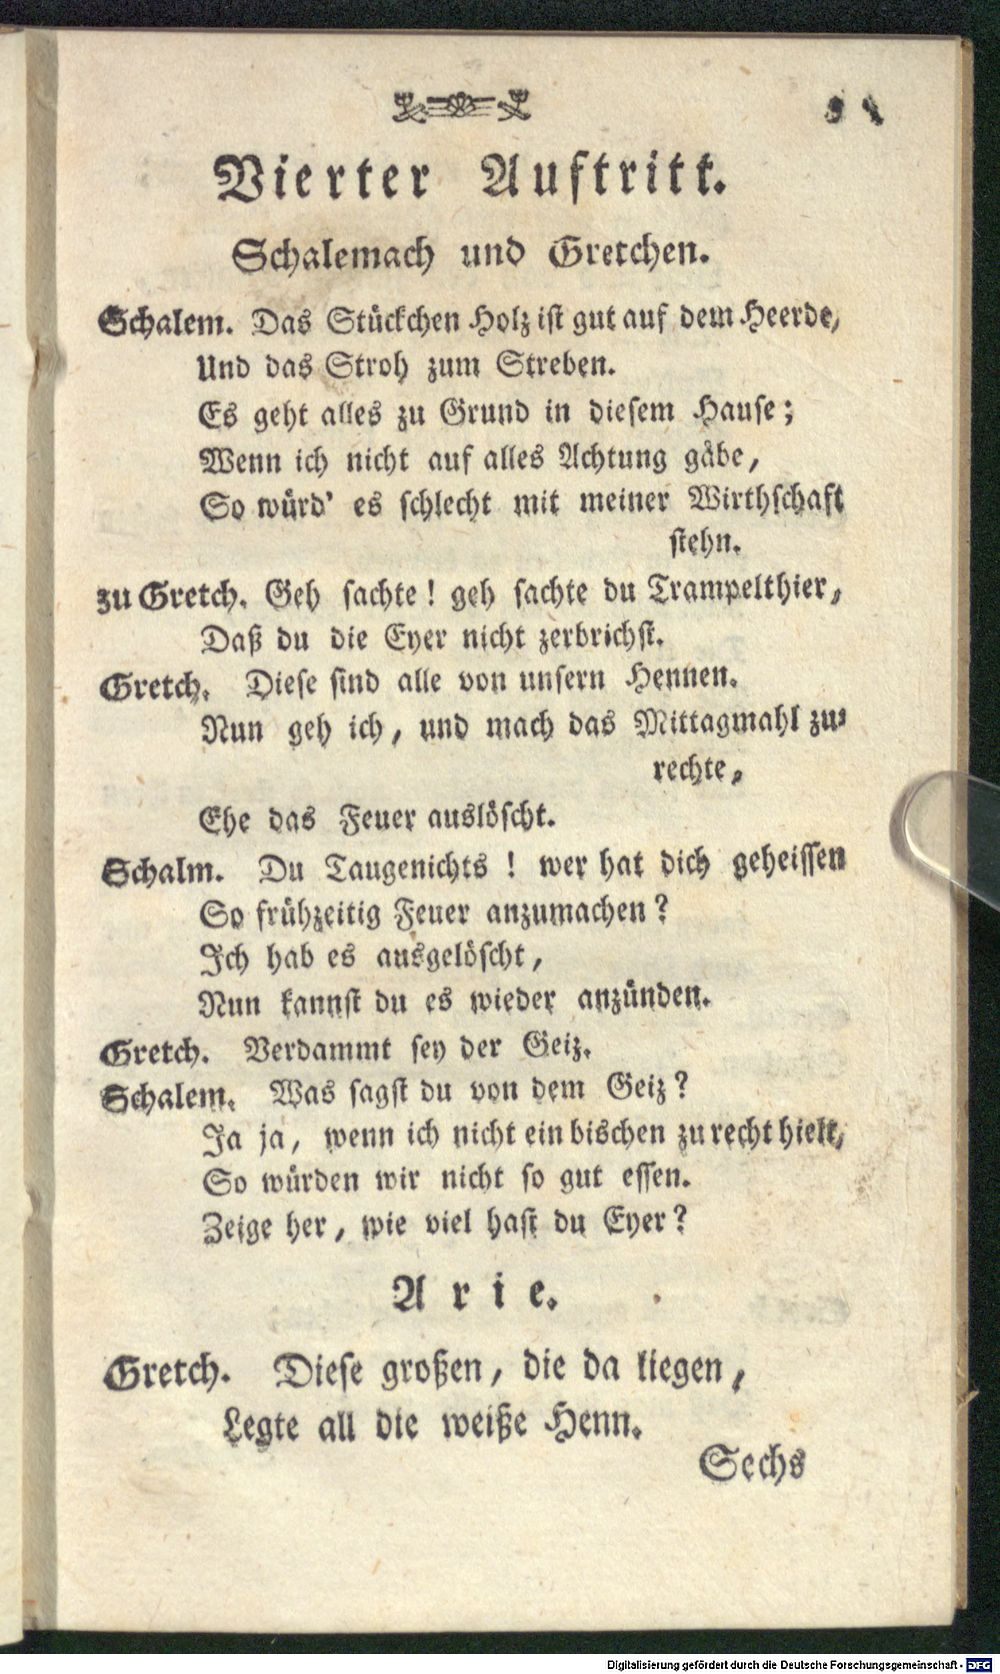 Vierter Auftritt.
Schalemach und Gretchen.
Schalem. Das Stückchen Holz ist gut auf dem Heerde,
Und das Stroh zum Streben.
Es geht alles zu Grund in diesem Hause;
Wenn ich nicht auf alles Achtung gäbe,
So würd' es schlecht mit meiner Wirthschaft
stehn.
zu Gretch. Geh sachte! geh sachte du Trampelthier,
Daß du die Eyer nicht zerbrichst.
Gretch. Diese sind alle von unsern Hennen.
Nun geh ich, und mach das Mittagmahl zu-
rechte,
Ehe das Feuer auslöscht.
Schalm. Du Taugenichts! wer hat dich geheissen
So frühzeitig Feuer anzumachen?
Ich hab es ausgelöscht,
Nun kannst du es wieder anzünden.
Gretch. Verdammt sey der Geiz.
Schalem. Was sagst du von dem Geiz?
Ja ja, wenn ich nicht ein bischen zu recht hielt,
So würden wir nicht so gut essen.
Zeige her, wie viel hast du Eyer?
Arie.
Gretch. Diese großen, die da liegen,
Legte all die weiße Henn.
Sechs
Digitalisierung gefördert durch die Deutsche Forschungsgemeinschaft - DFG